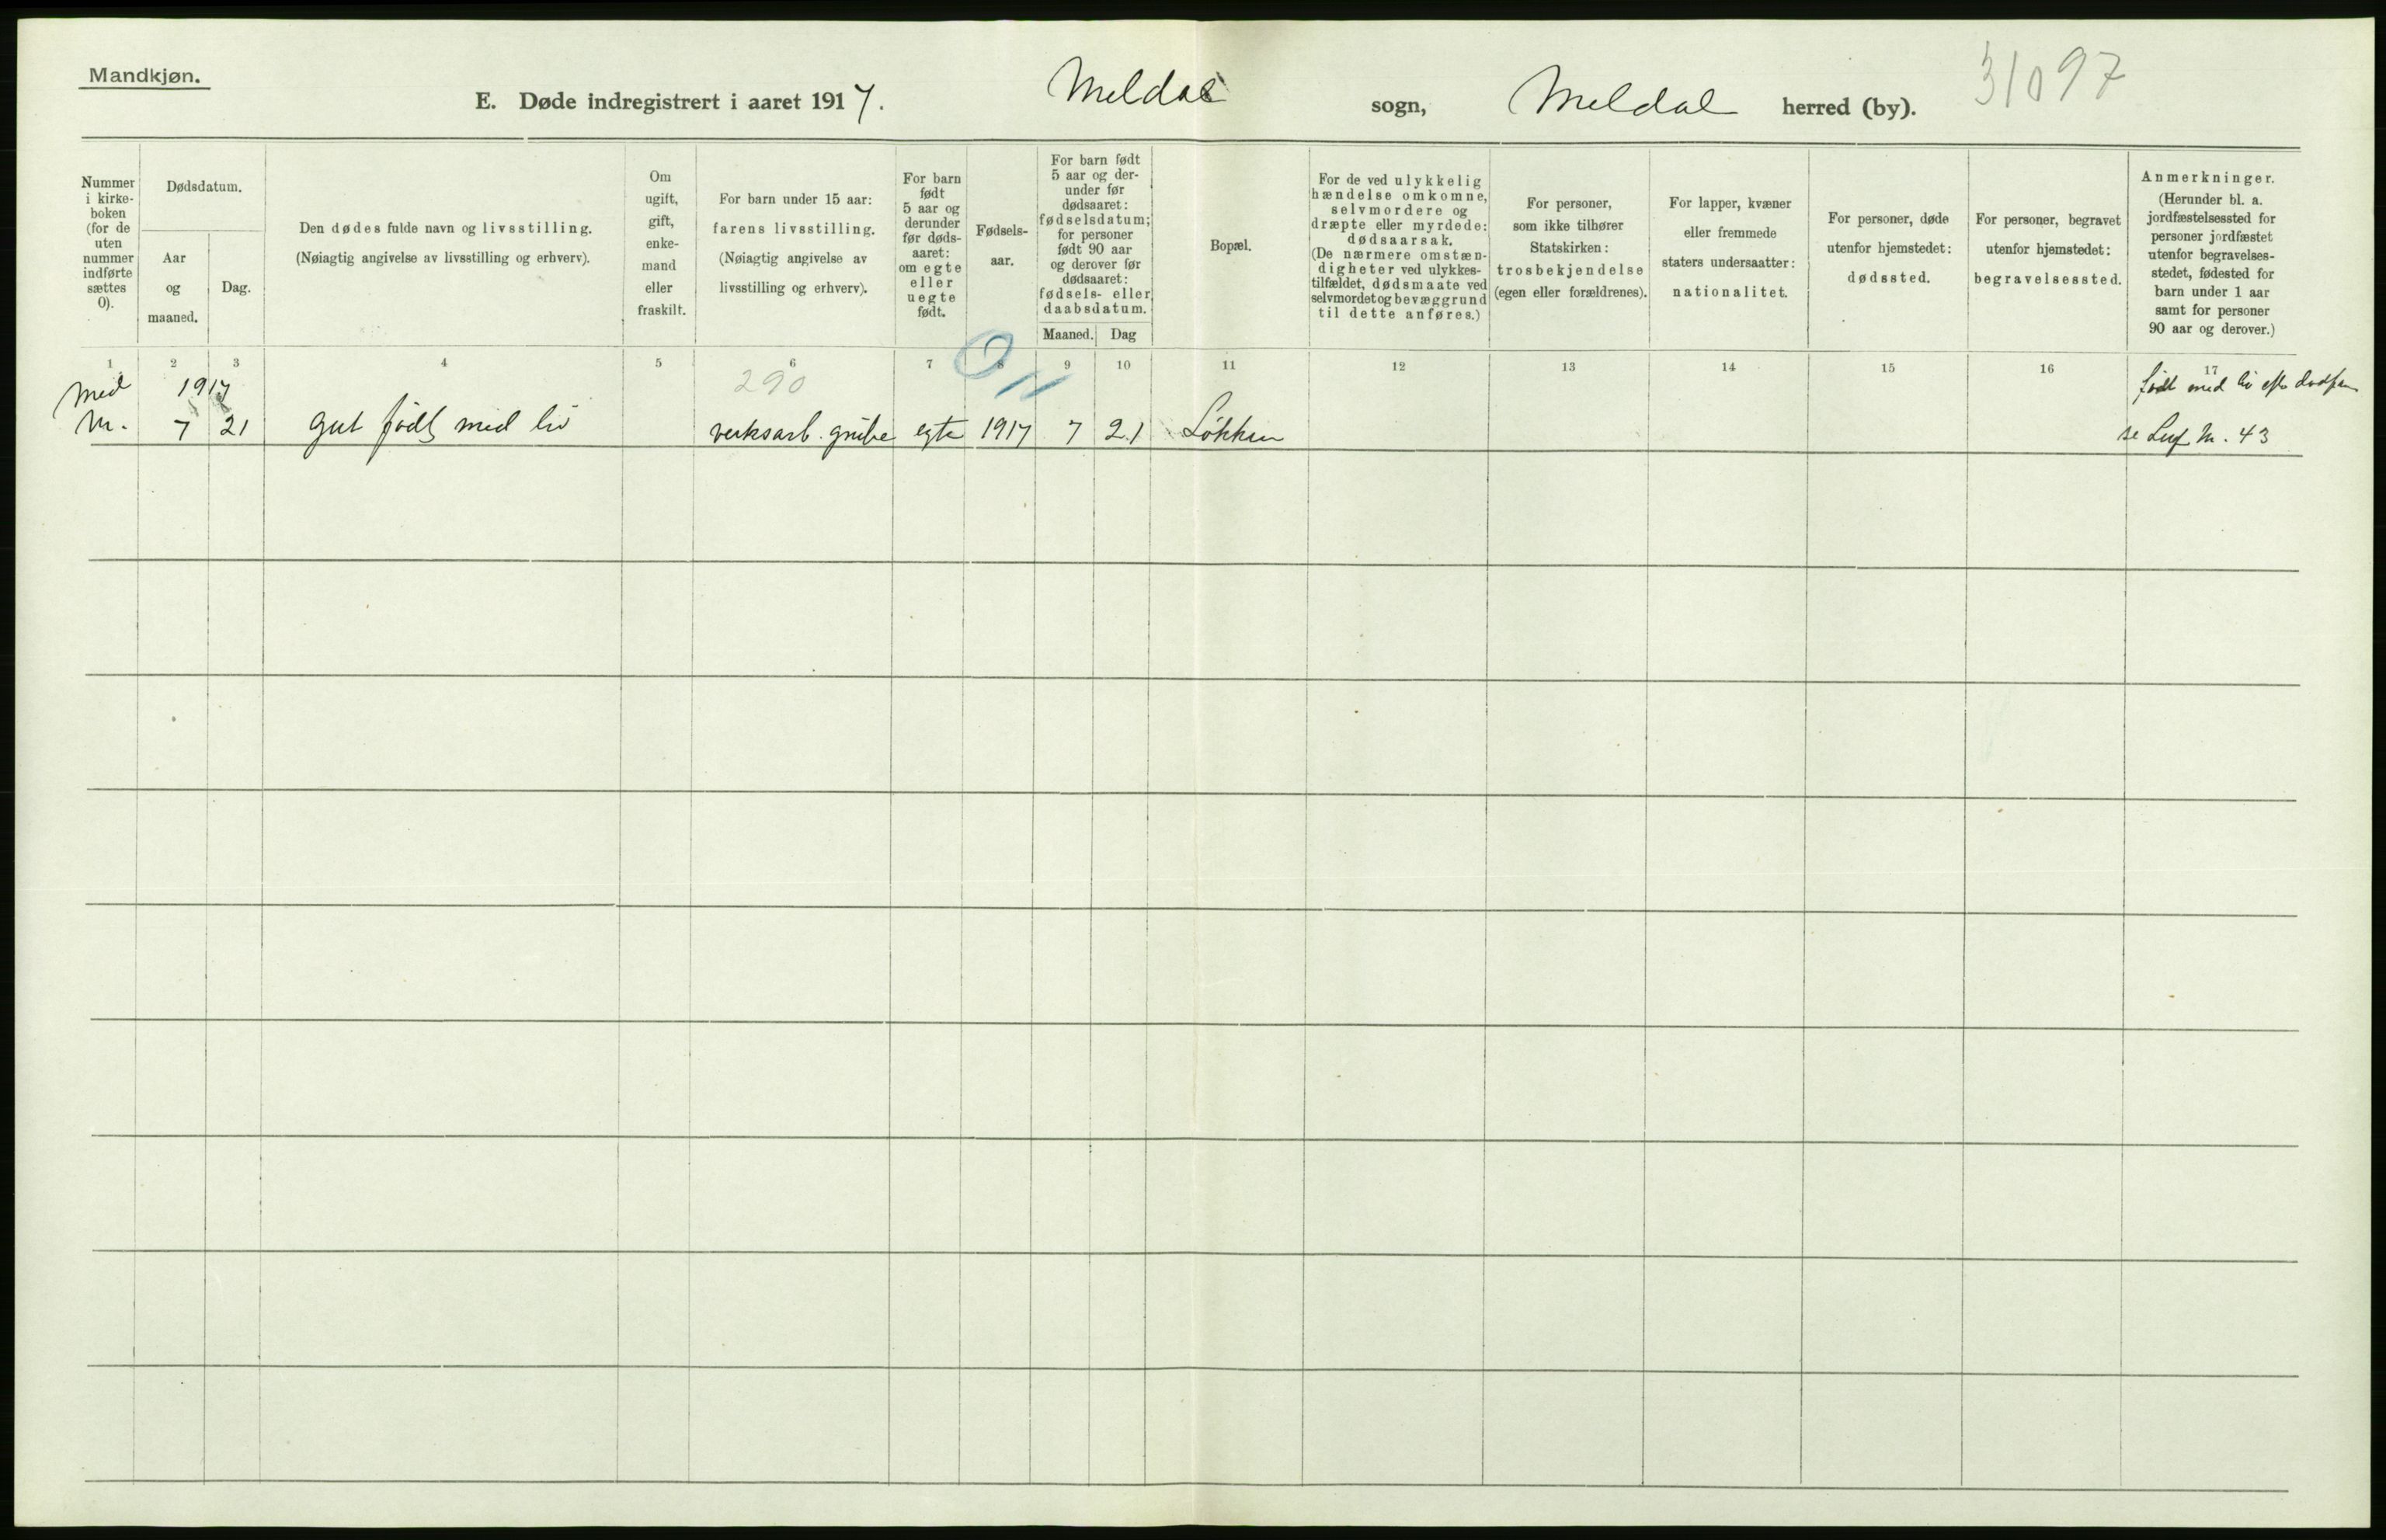 Mandkjøn.
E. Døde indregistrert i aaret 1917. Meldal sogn, Meldal herred (by). 31097
Nummer
i kirke-
boken
(for de
uten
nummer
indførte
sættes
0).
Dødsdatum.
Aar
og
maaned.
Dag.
Den dødes fulde navn og livsstilling.
(Nøiagtig angivelse av livsstilling og erhverv).
Om
ugift,
gift,
enke-
mand
eller
fraskilt.
For barn under 15 aar:
farens livsstilling.
(Nøiagtig angivelse av
livsstilling og erhverv).
For barn
født
5 aar og
derunder
før døds-
aaret:
om egte
eller
uegte
født.
Fødsels-
aar.
For barn født
5 aar og der-
under før
dødsaaret:
fødselsdatum;
for personer
født 90 aar
og derover før
dødsaaret:
fødsels- eller
daabsdatum.
Maaned. Dag
Bopæl.
For de ved ulykkelig
hændelse omkomne,
selvmordere og
dræpte eller myrdede:
dødsaarsak.
(De nærmere omstæn-
digheter ved ulykkes-
tilfældet, dødsmaate ved
selvmordet og bevæggrund
til dette anføres.)
For personer,
som ikke tilhører
Statskirken:
trosbekjendelse
(egen eller forældrenes).
For lapper, kvæner
eller fremmede
staters undersaatter:
nationalitet.
For personer, døde
utenfor hjemstedet:
dødssted.
For personer, begravet
utenfor hjemstedet:
begravelsessted.
Anmerkninger.
(Herunder bl. a.
jordfæstelsessted for
personer jordfæstet
utenfor begravelses-
stedet, fødested for
barn under 1 aar
samt for personer
90 aar og derover.)
1 2 3 4 5 6 7 8 9 10 11 12 13 14 15 16 17
Med 1917 290 født med liv efter
M. 7 21 gut født med liv verksarb. grube egte 1917 7 21 Løkken se M. 43